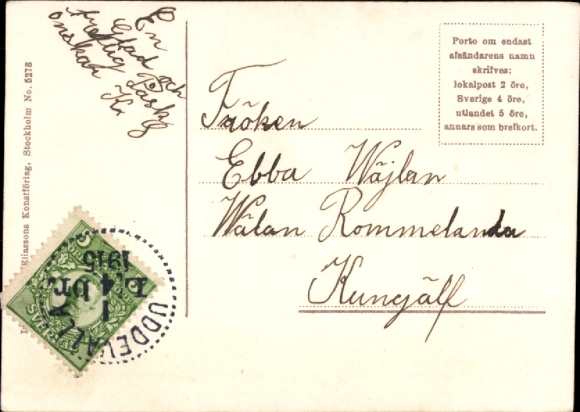 En
Glad och
treflig Påsk
önskar K. G
Porto om endast
afsändarens namn
skrifves:
lokalpost 2 öre,
Sverige 4 öre,
utlandet 5 öre,
annars som brefkort.
Fröken
Ebba Wäjlan
Wälan Rommelanda
Kungälf
Eliassons Konstförlag, Stockholm No. 5278
UDDEVALLA
1
4 br.
1915
SVERIGE